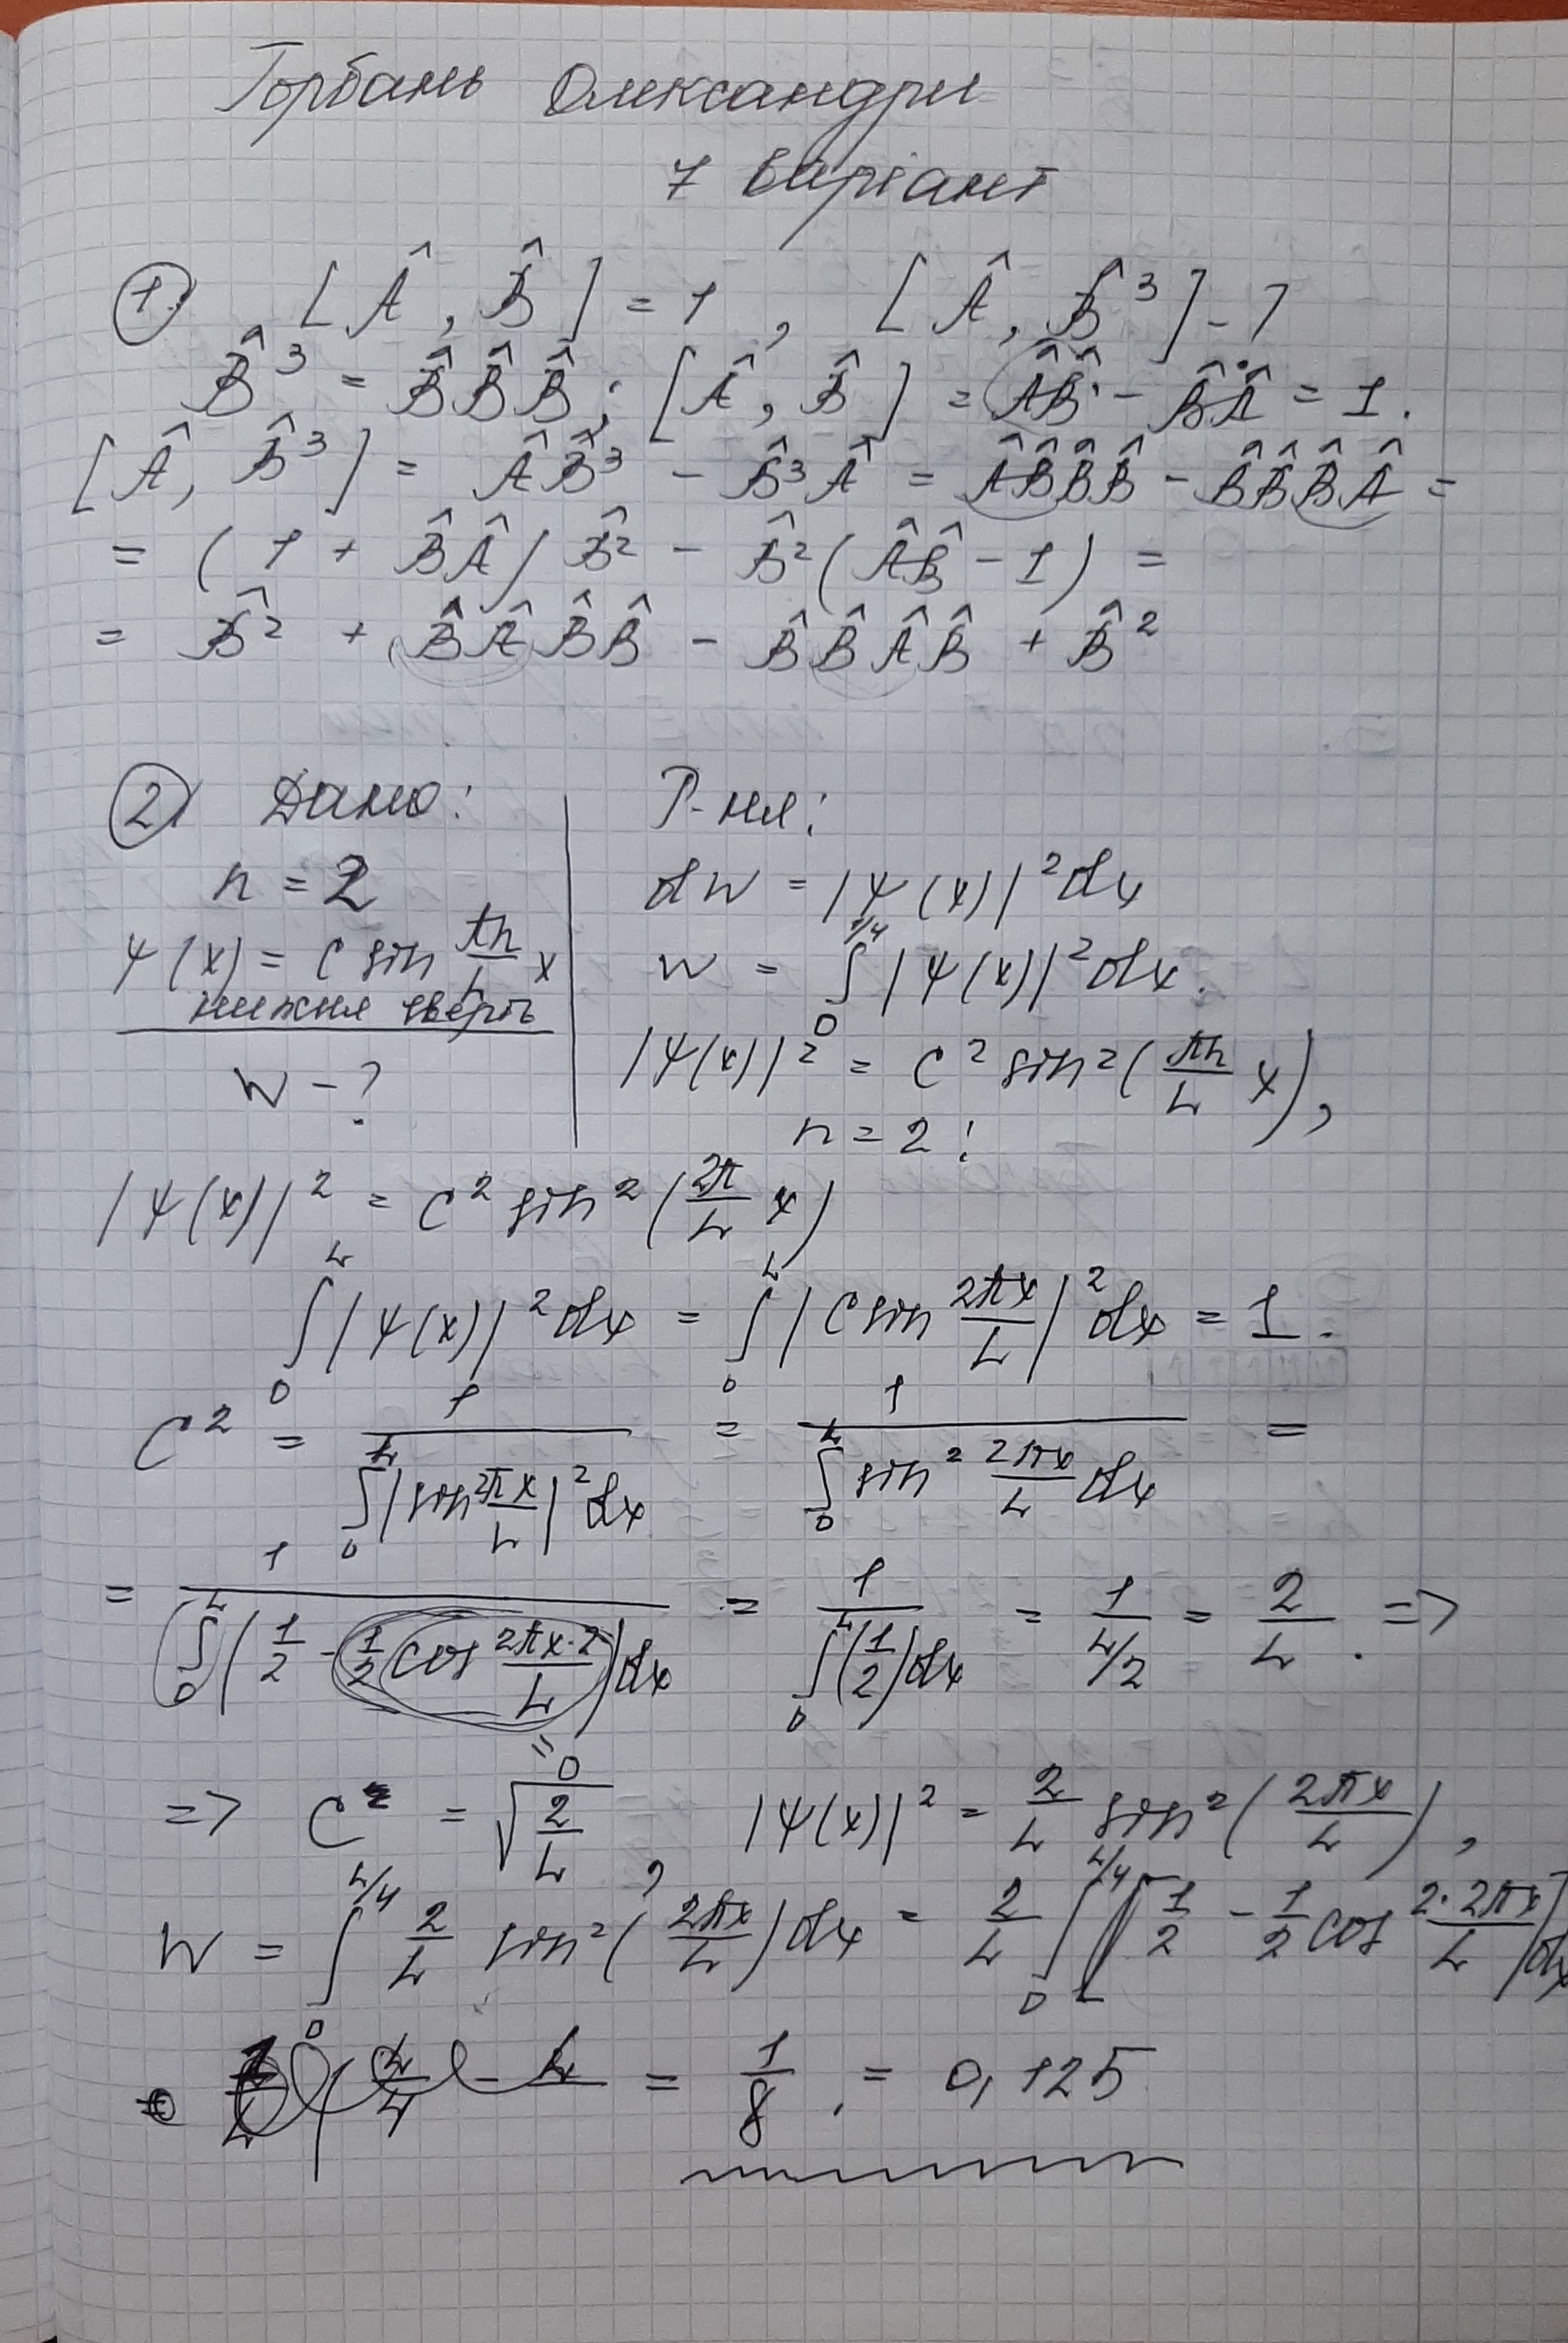 Горбань Олександри
7 варіант
1. [Â, B̂] = 1 , [Â, B̂³] - ?
B̂³ = B̂B̂B̂; [Â, B̂] = ÂB̂ - B̂Â = 1.
[Â, B̂³] = ÂB̂³ - B̂³Â = ÂB̂B̂B̂ - B̂B̂B̂Â =
= (1 + B̂Â) B̂² - B̂²(ÂB̂ - 1) =
= B̂² + B̂ÂB̂B̂ - B̂B̂ÂB̂ + B̂²
2. Дано:
n = 2
ψ(x) = C sin πn/L x
нижня чверть
W - ?
Р-ня:
dW = |ψ(x)|² dx
W = ∫₀^{L/4} |ψ(x)|² dx.
|ψ(x)|² = C² sin² (πn/L x),
n = 2:
|ψ(x)|² = C² sin² (2π/L x)
∫₀^L |ψ(x)|² dx = ∫₀^L |C sin 2πx/L|² dx = 1.
C² = 1/∫₀^L |sin 2πx/L|² dx = 1/∫₀^L sin² 2πx/L dx =
= 1/∫₀^L (1/2 - 1/2 cos 2πx·2/L) dx = 1/∫₀^L (1/2) dx = 1/L/2 = 2/L. =>
= 0
=> C = √2/L , |ψ(x)|² = 2/L sin² (2πx/L),
W = ∫₀^{L/4} 2/L sin² (2πx/L) dx = 2/L ∫₀^{L/4} [1/2 - 1/2 cos 2·2πx/L] dx
= 1/8 . = 0,125